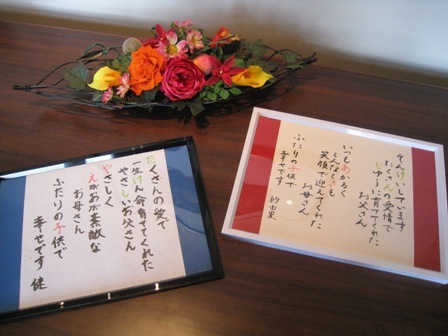 たくさんの愛で
一生けん命育ててくれた
やさしいお父さん
やさしく
えがおが素敵な
お母さん
ふたりの子供で
幸せです 健
そんけいしています
たくさんの愛情で
じゆうに育ててくれた
お父さん
いつもあかるく
どんなときも
笑顔で迎えてくれた
お母さん
ふたりの子供で
幸せです
紗由里